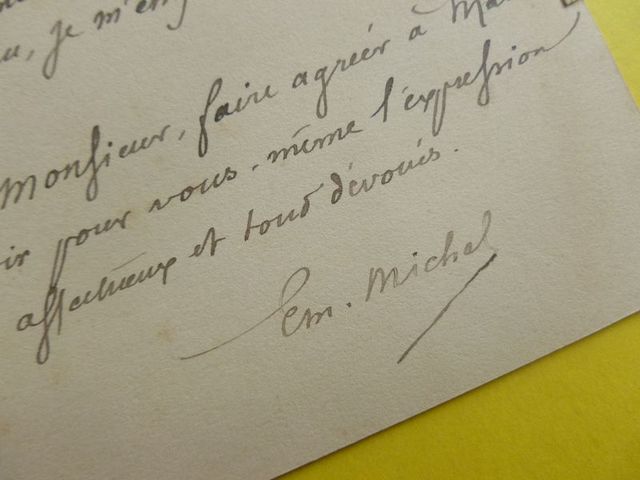 je m'en
Monsieur, faire agréer à Ma
ir pour vous-même l'expression
affectueux et tout dévoués.
Em. Michel